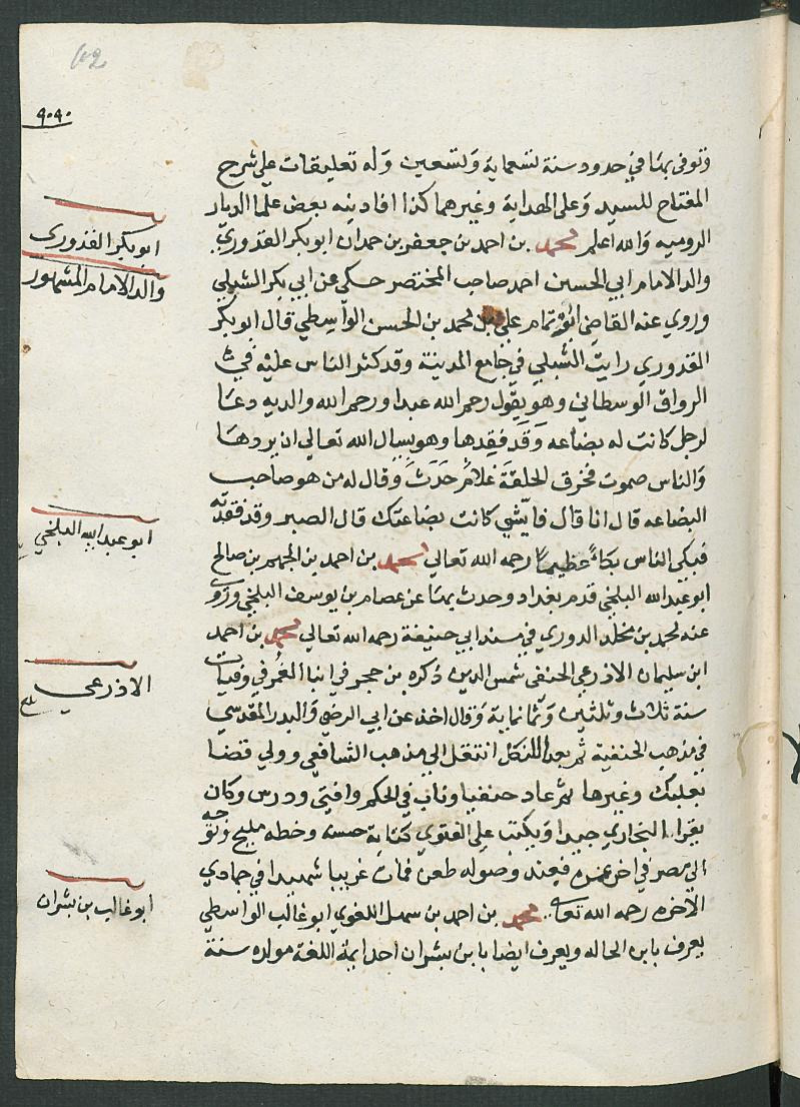 402
٩٠٩٠
وتوفي بمنا في حدود سنة تسعماية وتسعين وله تعليقات على شرح
المفتاح للسيد وعلى الهداية وغيرهما كذا افادنيه بعض علما الديار
الروميه والله اعلم محمد بن احمد بن جعفر بن حمدان ابو بكر القدوري
ابو بكر القدوري
والد الامام المشهور
والد الامام ابي الحسين احمد صاحب المختصر حكى عن ابي بكر الشبلي
وروي عنه القاضي ابو تمام علي بن محمد بن الحسن الواسطي قال ابو بكر
القدوري رايت الشبلي في جامع المدينة وقد كثر الناس عليه في
الرواق الوسطاني وهو يقول رحم الله عبدا ورحم الله والديه دعا
لرجل كانت له بضاعه وقد فقدها وهو يسال الله تعالى ان يردها
والناس صموت فخرق الحلقة غلام حدث وقال له من هو صاحب
البضاعه قال انا قال فايشي كانت بضاعتك قال الصبر وقد فقدته
ابو عبد الله البلخي
فبكي الناس بكاء عظيما رحمه الله تعالى محمد بن احمد بن الجهم بن صالح
ابو عبد الله البلخي قدم بغداد وحدث بها عن عصام بن يوسف البلخي وروي
عنه محمد بن مخلد الدوري في مسند ابي حنيفة رحمه الله تعالى محمد بن احمد
ابن سليمان الاذرعي الحنفي شمس الدين ذكره بن حجر في انبا الغمر في وفيات
الاذرعي
سنة ثلاث وثلثين وثمانماية وقال اخذ عن ابي الرضي والبدر المقدسي
في مذهب الحنفية ثم بعد اللنكل انتقل الى مذهب الشافعي وولي قضا
بعلبك وغيرها ثم عاد حنفيا وناب في الحكم وافتي ودرس وكان
يقرا البخاري جيدا ويكتب على الفتوي كتابة حسنه وخطه مليح وتوجه
الى مصر في اخر عمره فعند وصوله طعن فمات غريبا شهيدا في جمادي
الاخره رحمه الله تعالى محمد بن احمد بن سهل اللغوي ابو غالب الواسطي
ابو غالب بن بشران
يعرف بابن الخاله ويعرف ايضا بابن بشران احد ايمة اللغة مولده سنة